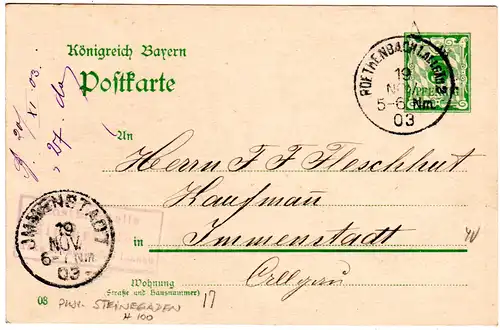 Königreich Bayern
Postkarte
ROETHENBACH i. ALLGÄU
19
NOV
5-6 Nm
03
PFENNIG
An
Herrn F F Fleschhut
Kaufmann
in Immenstadt
Allgäu
IMMENSTADT
19
NOV.
6-7 Nm
03
Wohnung
(Straße und Hausnummer)
03
STEINEGADEN
# 100
17